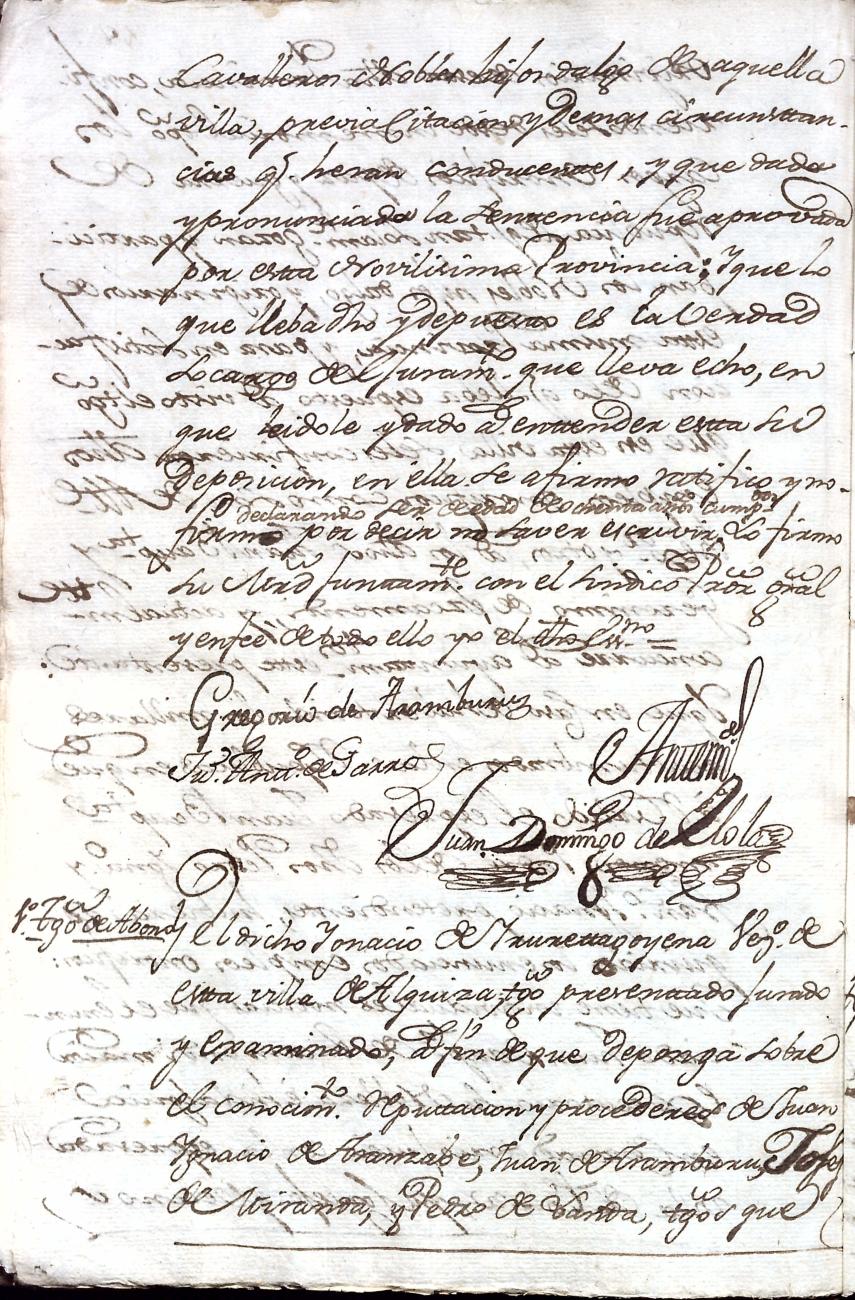 Cavalleros Nobles hijos dalgo de aquella
villa, previa Citacion y demas circunstan-
cias q.e heran conducentes, y que dada
y pronunciada la sentencia fue aprovada
por esta Novilisima Provincia: Y que lo
que lleba dho y depuesto es la Verdad
so cargo del Juram.to que lleva echo, en
que leidole y dado a entender esta su
Deposicion, en ella se afirmo ratifico y no
declarando ser de edad de ochenta años cump.dos
firmo por decir no saver escrivir, Lo firmo
su Mrd juntam.te con el Sindico Pror Gral
y enfee de todo ello yo el dho Ess.no =
Gregorio de Aramburu
Ju.o Ant.o de Garro
Antemi
Juan Domingo de Ulola
1.o Tgo de Abono
Y el dicho Ygnacio de Yrurettagoyena Vez.o de
esta villa de Alquiza, tgo presentado jurado
y examinado, A fin de que deponga sobre
el conocim.to reputtacion y procederes de Juan
Ygnacio de Aranzabe, Juan de Aramburu, Josef
de Miranda, y Pedro de Vanda, tgos que